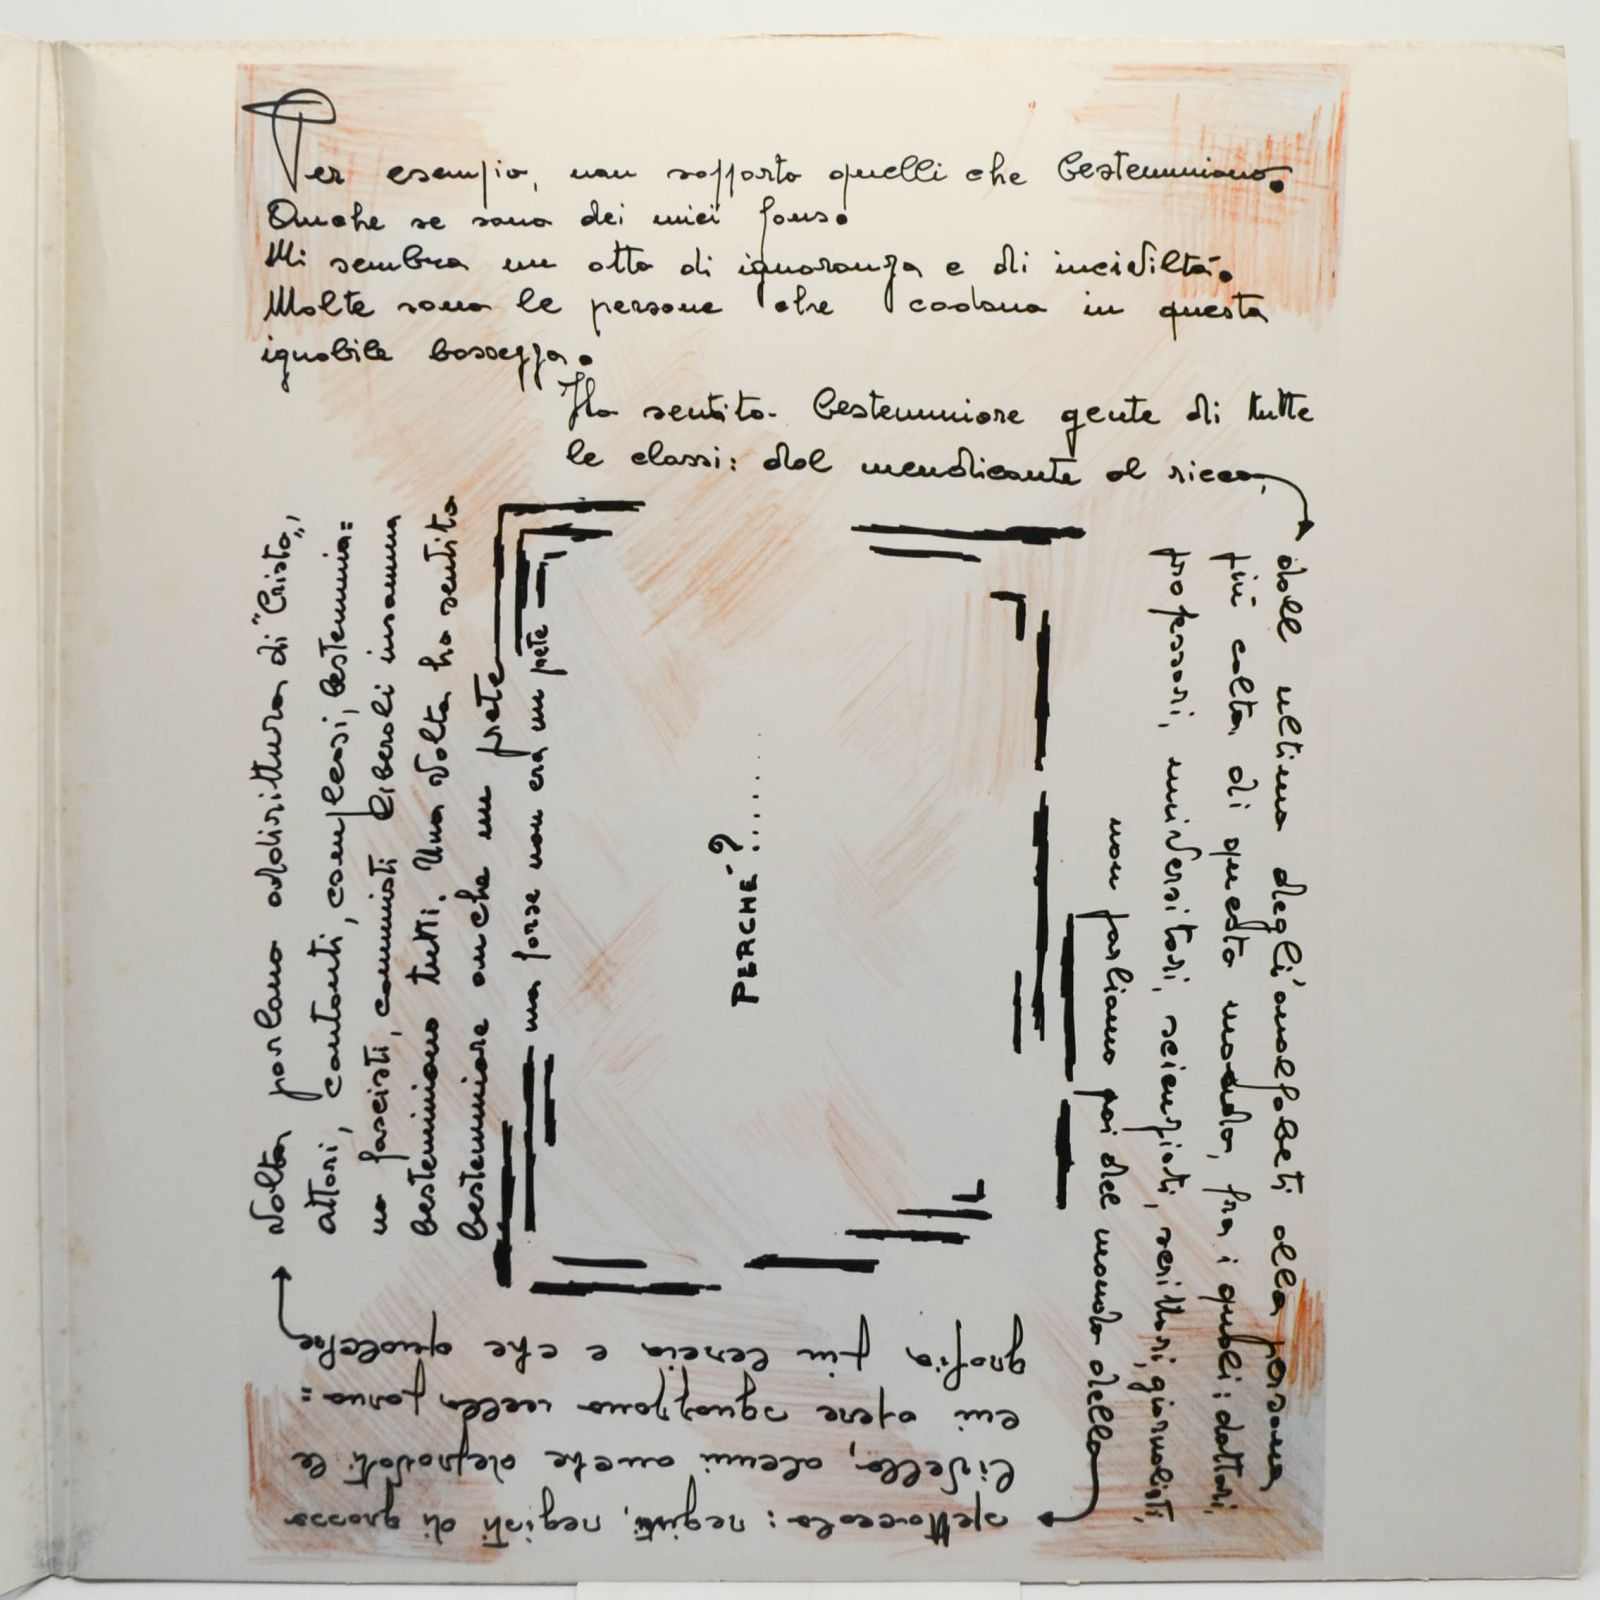 Per esempio, non sopporto quelli che bestemmiano.
Anche se sono dei miei fans.
Mi sembra un atto di ignoranza e di inciviltà.
Molte sono le persone che cadono in questa
ignobile bassezza.
Ho sentito bestemmiare gente di tutte
le classi: dal mendicante al ricco,
dall' ultimo degli'analfabeti alla persona
più colta di questo mondo, fra i quali: dottori,
professori, universitari, scienziati, scrittori, giornalisti,
non parliamo poi del mondo dello
spettacolo: registi, registi di grosso
livello, alcuni anche depravati le
cui opere sguazzano nella porno=
grafia più lercia e che qualche
volta parlano addirittura di "Cristo„,
attori, cantanti, complessi, bestemmia=
no fascisti, comunisti liberali insomma
bestemmiano tutti. Una volta ho sentito
bestemmiare anche un prete
ma forse non era un prete
PERCHÉ?......